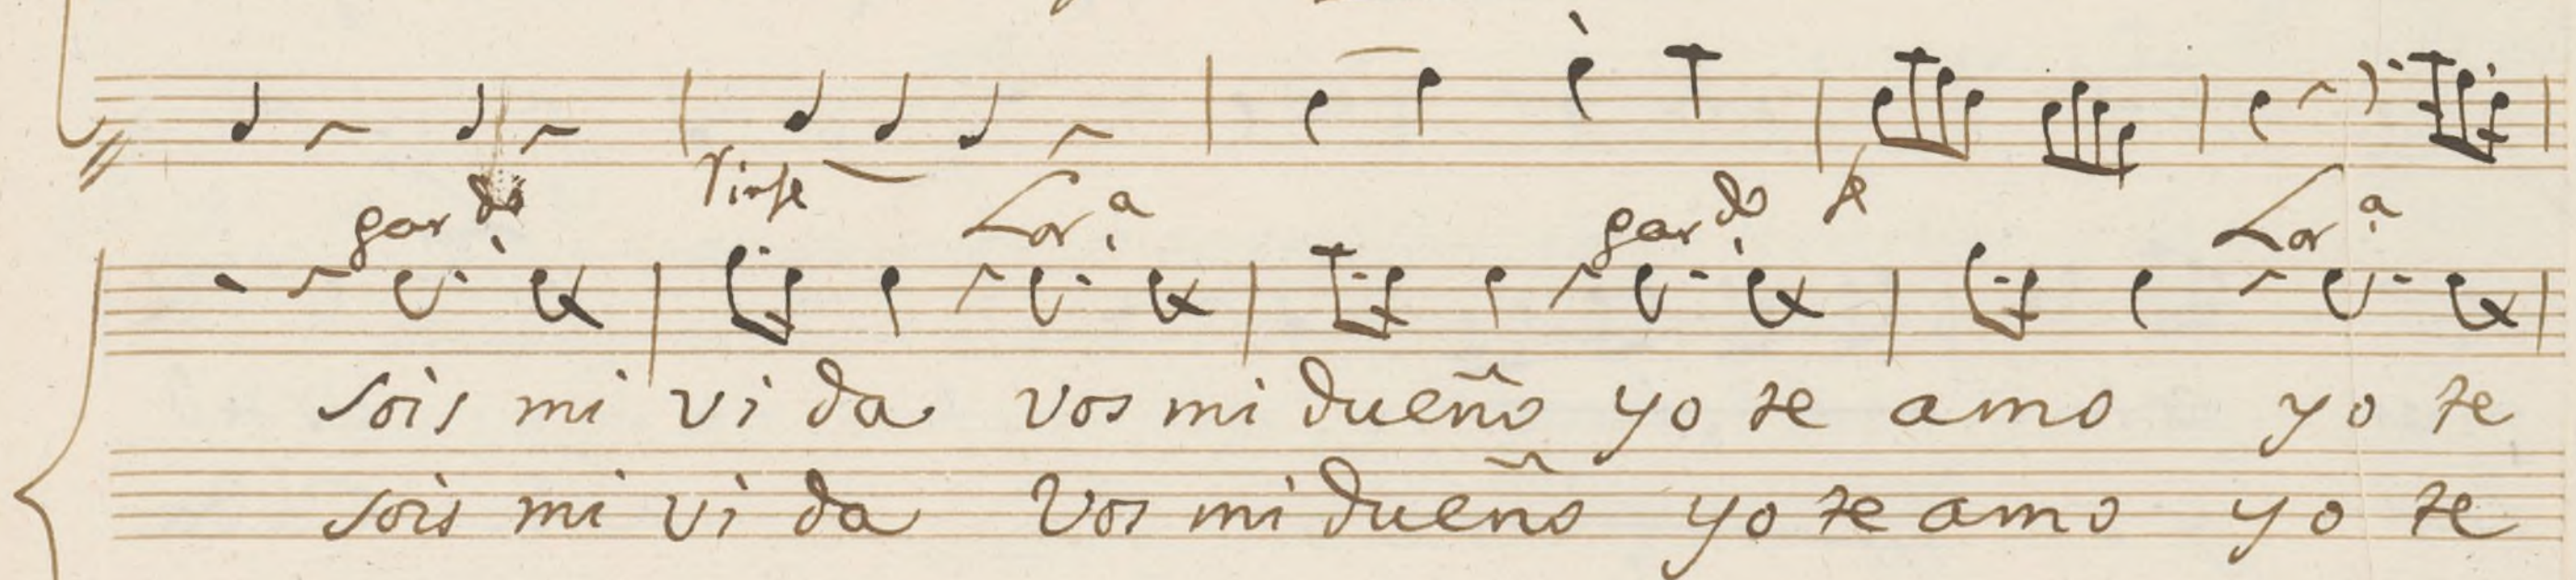 gar do Lor a gar do Lor a
sois mi vi da vos mi dueño yo te amo yo te
sois mi vi da vos mi dueño yo te amo yo te